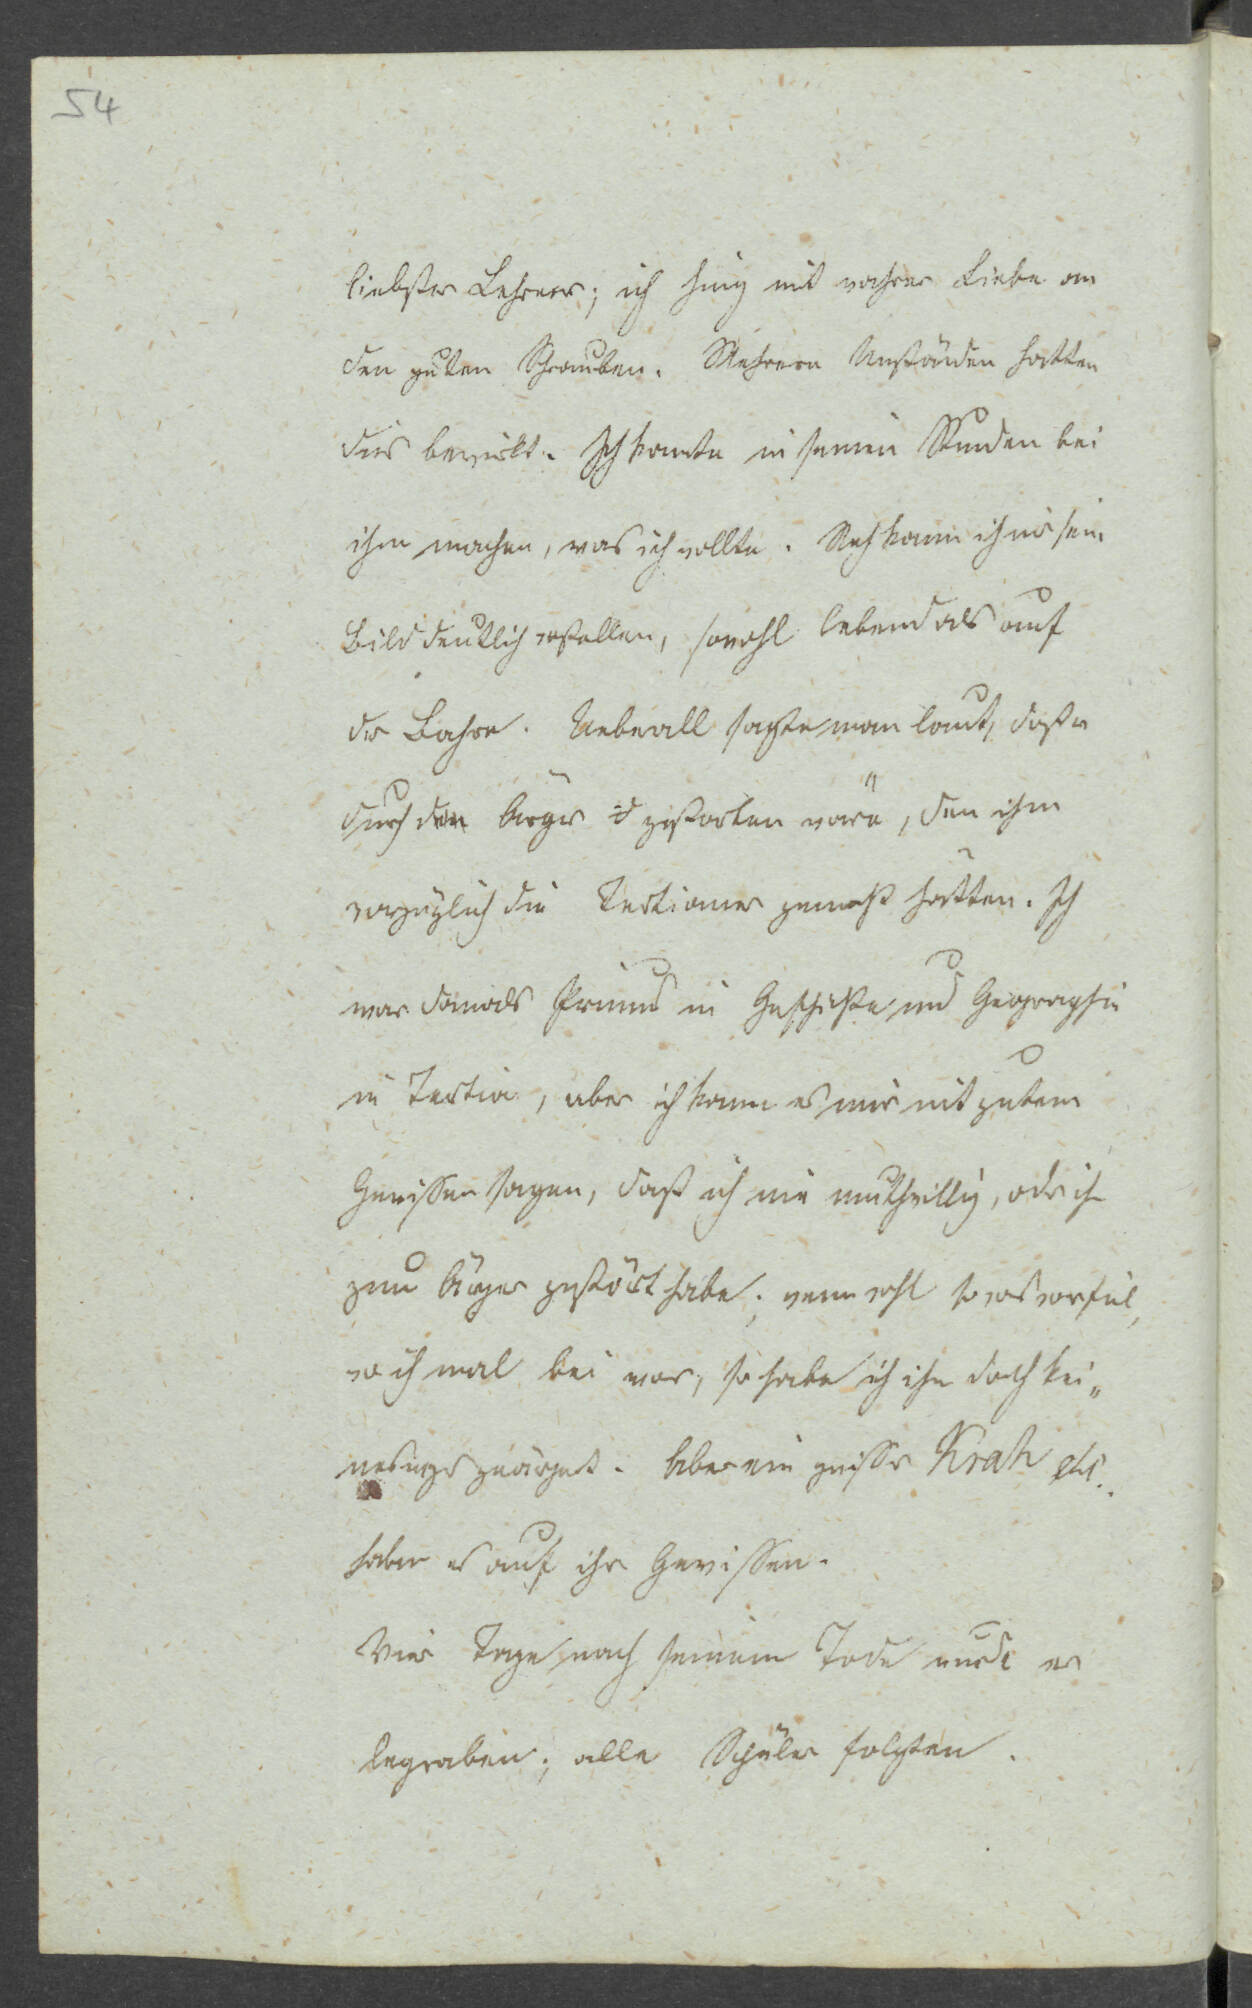 54
liebster Lehrer; ich hing mit wahrer Liebe an
den guten Schrauben. Mehrere Umständen hatten
dies bewirkt. Ich konnte in seinen Stunden bei
ihm machen, was ich wollte. Noch kann ich mir sein
Bild deutlich vorstellen, sowohl lebend als auf
der Bahre. Ueberall sagte man laut, daß er
durch den Ärger gestorben wäre, den ihm
vorzüglich die Tertianer gemacht hätten. Ich
war damals Primus in Geschichte und Geographie
in Tertia, aber ich kann es mir mit gutem
Gewissen sagen, daß ich nie muthwillig, oder ihn
zum Ärger gestört habe; wenn wohl so was vorfiel,
wo ich mal bei war, so habe ich ihn doch kei„
nesweges geärgert. Aber ein gewisser Krah etc.
haben es auf ihr Gewissen.
Vier Tage nach seinem Tode wurde er
begraben; alle Schüler folgten.